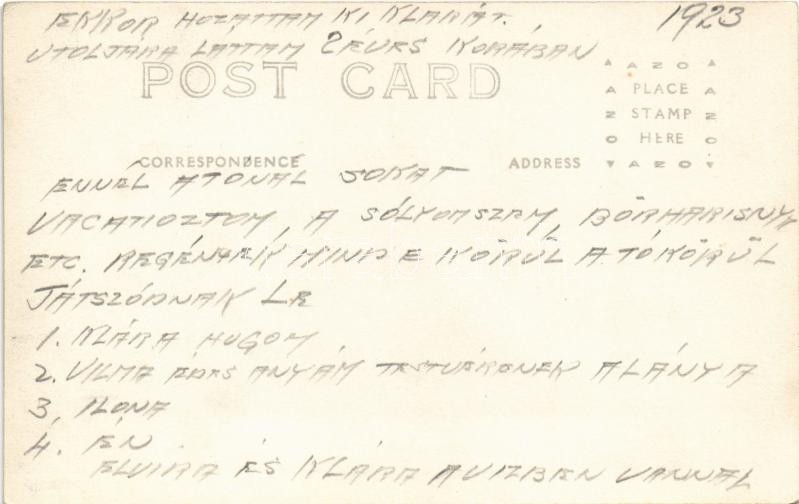 EKKOR HOZATTAM KI KLÁRÁT. 1923
UTOLJARA LATTAM 2 ÉVES KORÁBAN
POST CARD
AZO
PLACE
STAMP
HERE
AZO
CORRESPONDENCE ADDRESS
ENNÉL A TÓNÁL SOKAT
VACATIOZTOM, A SÓLYOMSZEM, BŐRHARISNYA
ETC. REGÉNYEK MIND E KÖRÜL A TÓ KÖRÜL
JÁTSZÓDNAK LE
1. KLÁRA HUGOM
2. VILMA ÉDES ANYÁM TESTVÉRÉNEK A LÁNYA
3, ILONA
4. ÉN
ELVIRA ÉS KLÁRA A VIZBEN VANNAK